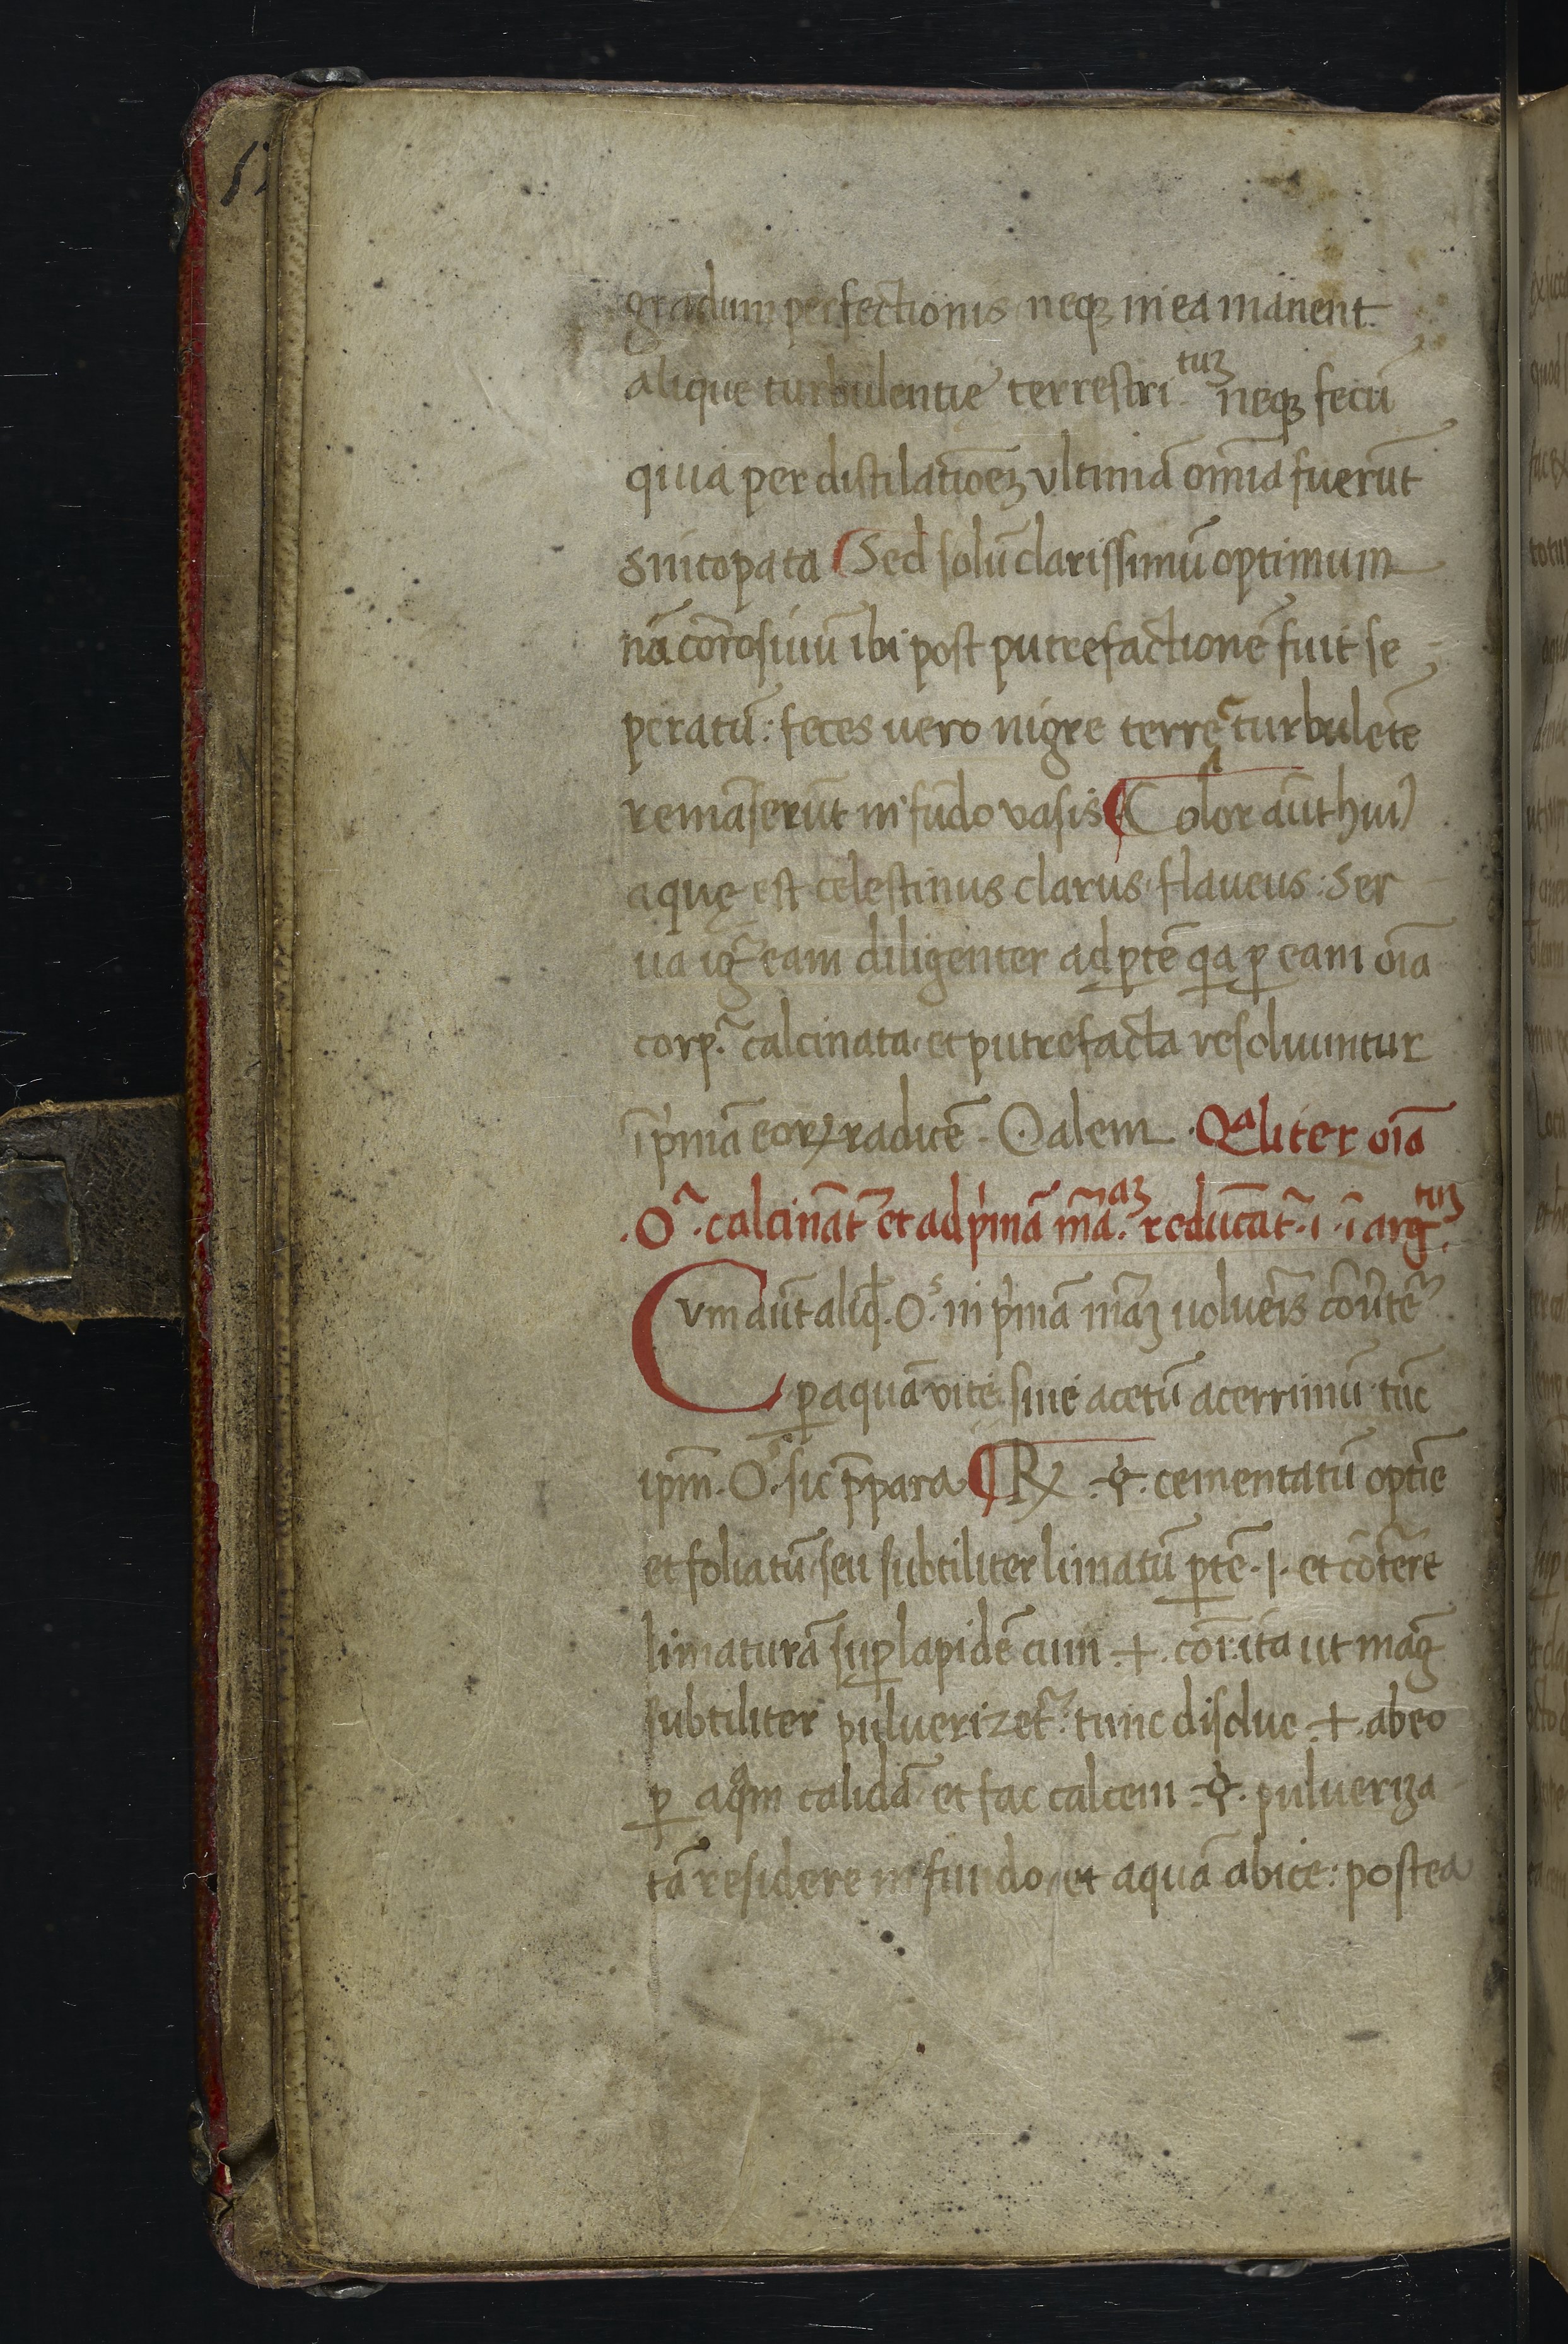 gradum perfectionis neqꝫ in ea manent
alique turbulentie terrestri tuꝫ neqꝫ fecū
quia per distilatioēꝫ vltimā omīa fuerūt
sincopata Sed solū clarissimū optimum
nō corrōsiuū ibi post putrefactionē fuit se
peratū : feces uero nigre terre turbulēte
remāserūt in fūdo vasis Color aūt hui)
aquę est celestinus clarus flaueus : Ser
ua igr̄ eam diligenter ad ꝑtē qa ꝑ eam oīa
corp.ᵃ calcinata et putrefacta resoluuntur
ī pͥmā eoꝝ radicē . Qalem . Qaliter oīa
.Oᵃ. calcināt᷑ et ad pͥmā mā.aꝫ reducāt᷑ .i. ī arg.tuꝫ
Cvm aūt aliqđ .Oˢ. in pͥmā māꝫ uoluēis cōu̅te᷑
ꝑ aquā vite siue acetū acerrimū tūc
ipm̄ .Oˢ. sic p̄para ℞ .☿. cementatū optīe
et foliatū seu subtiliter limatū ꝑtē .I. et cōtēre
limaturā suꝑ lapidē cum .+. cōi. ita ut maḡ
subtiliter pulueriꝫet᷑. tunc disolue .+. ab eo
ꝑ aqᵃm calidā et fac calcem .☿. pulueriꝫa
tā residere in fundo et aquā abice : postea